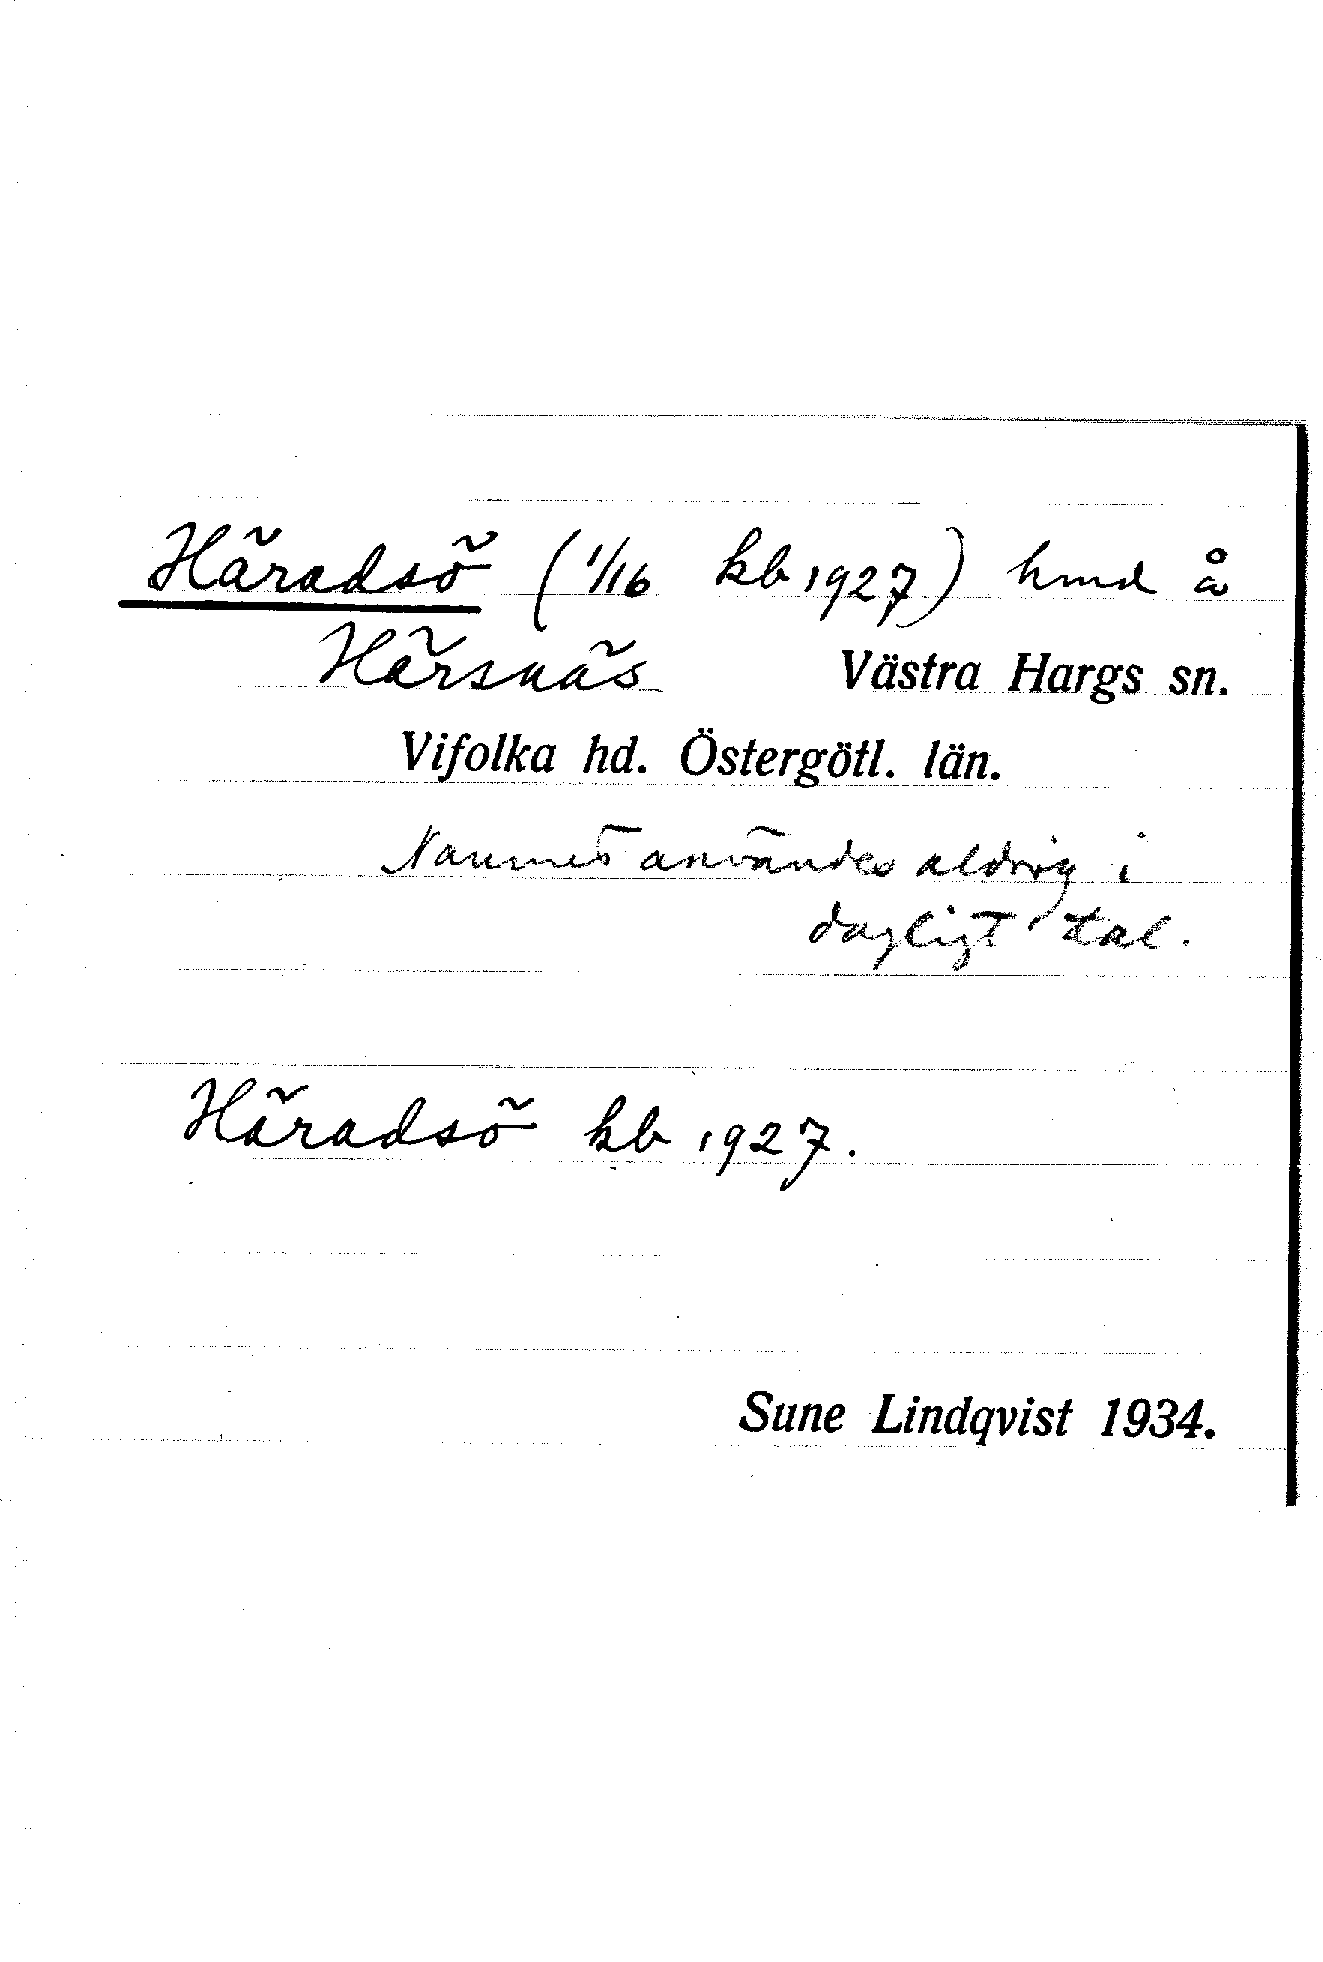 Häradsö (1/16 kb 1927) hmd å
Härsnäs Västra Hargs sn.
Vifolka hd. Östergötl. län.
Namnet användes aldrig i
dagligt tal.
Häradsö kb 1927.
Sune Lindqvist 1934.